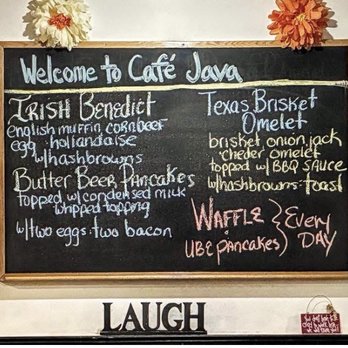 Welcome to Café Java
IRISH Benedict
english muffin corn beef
egg · hollandaise
w/hashbrowns
Butter Beer Pancakes
topped w/condensed milk
whipped topping
w/two eggs · two bacon
Texas Brisket
Omelet
brisket onion jack
cheder omelet
topped w/ BBQ SAUCE
w/hashbrowns · toast
WAFFLE } Every
UBE Pancakes } DAY
LAUGH